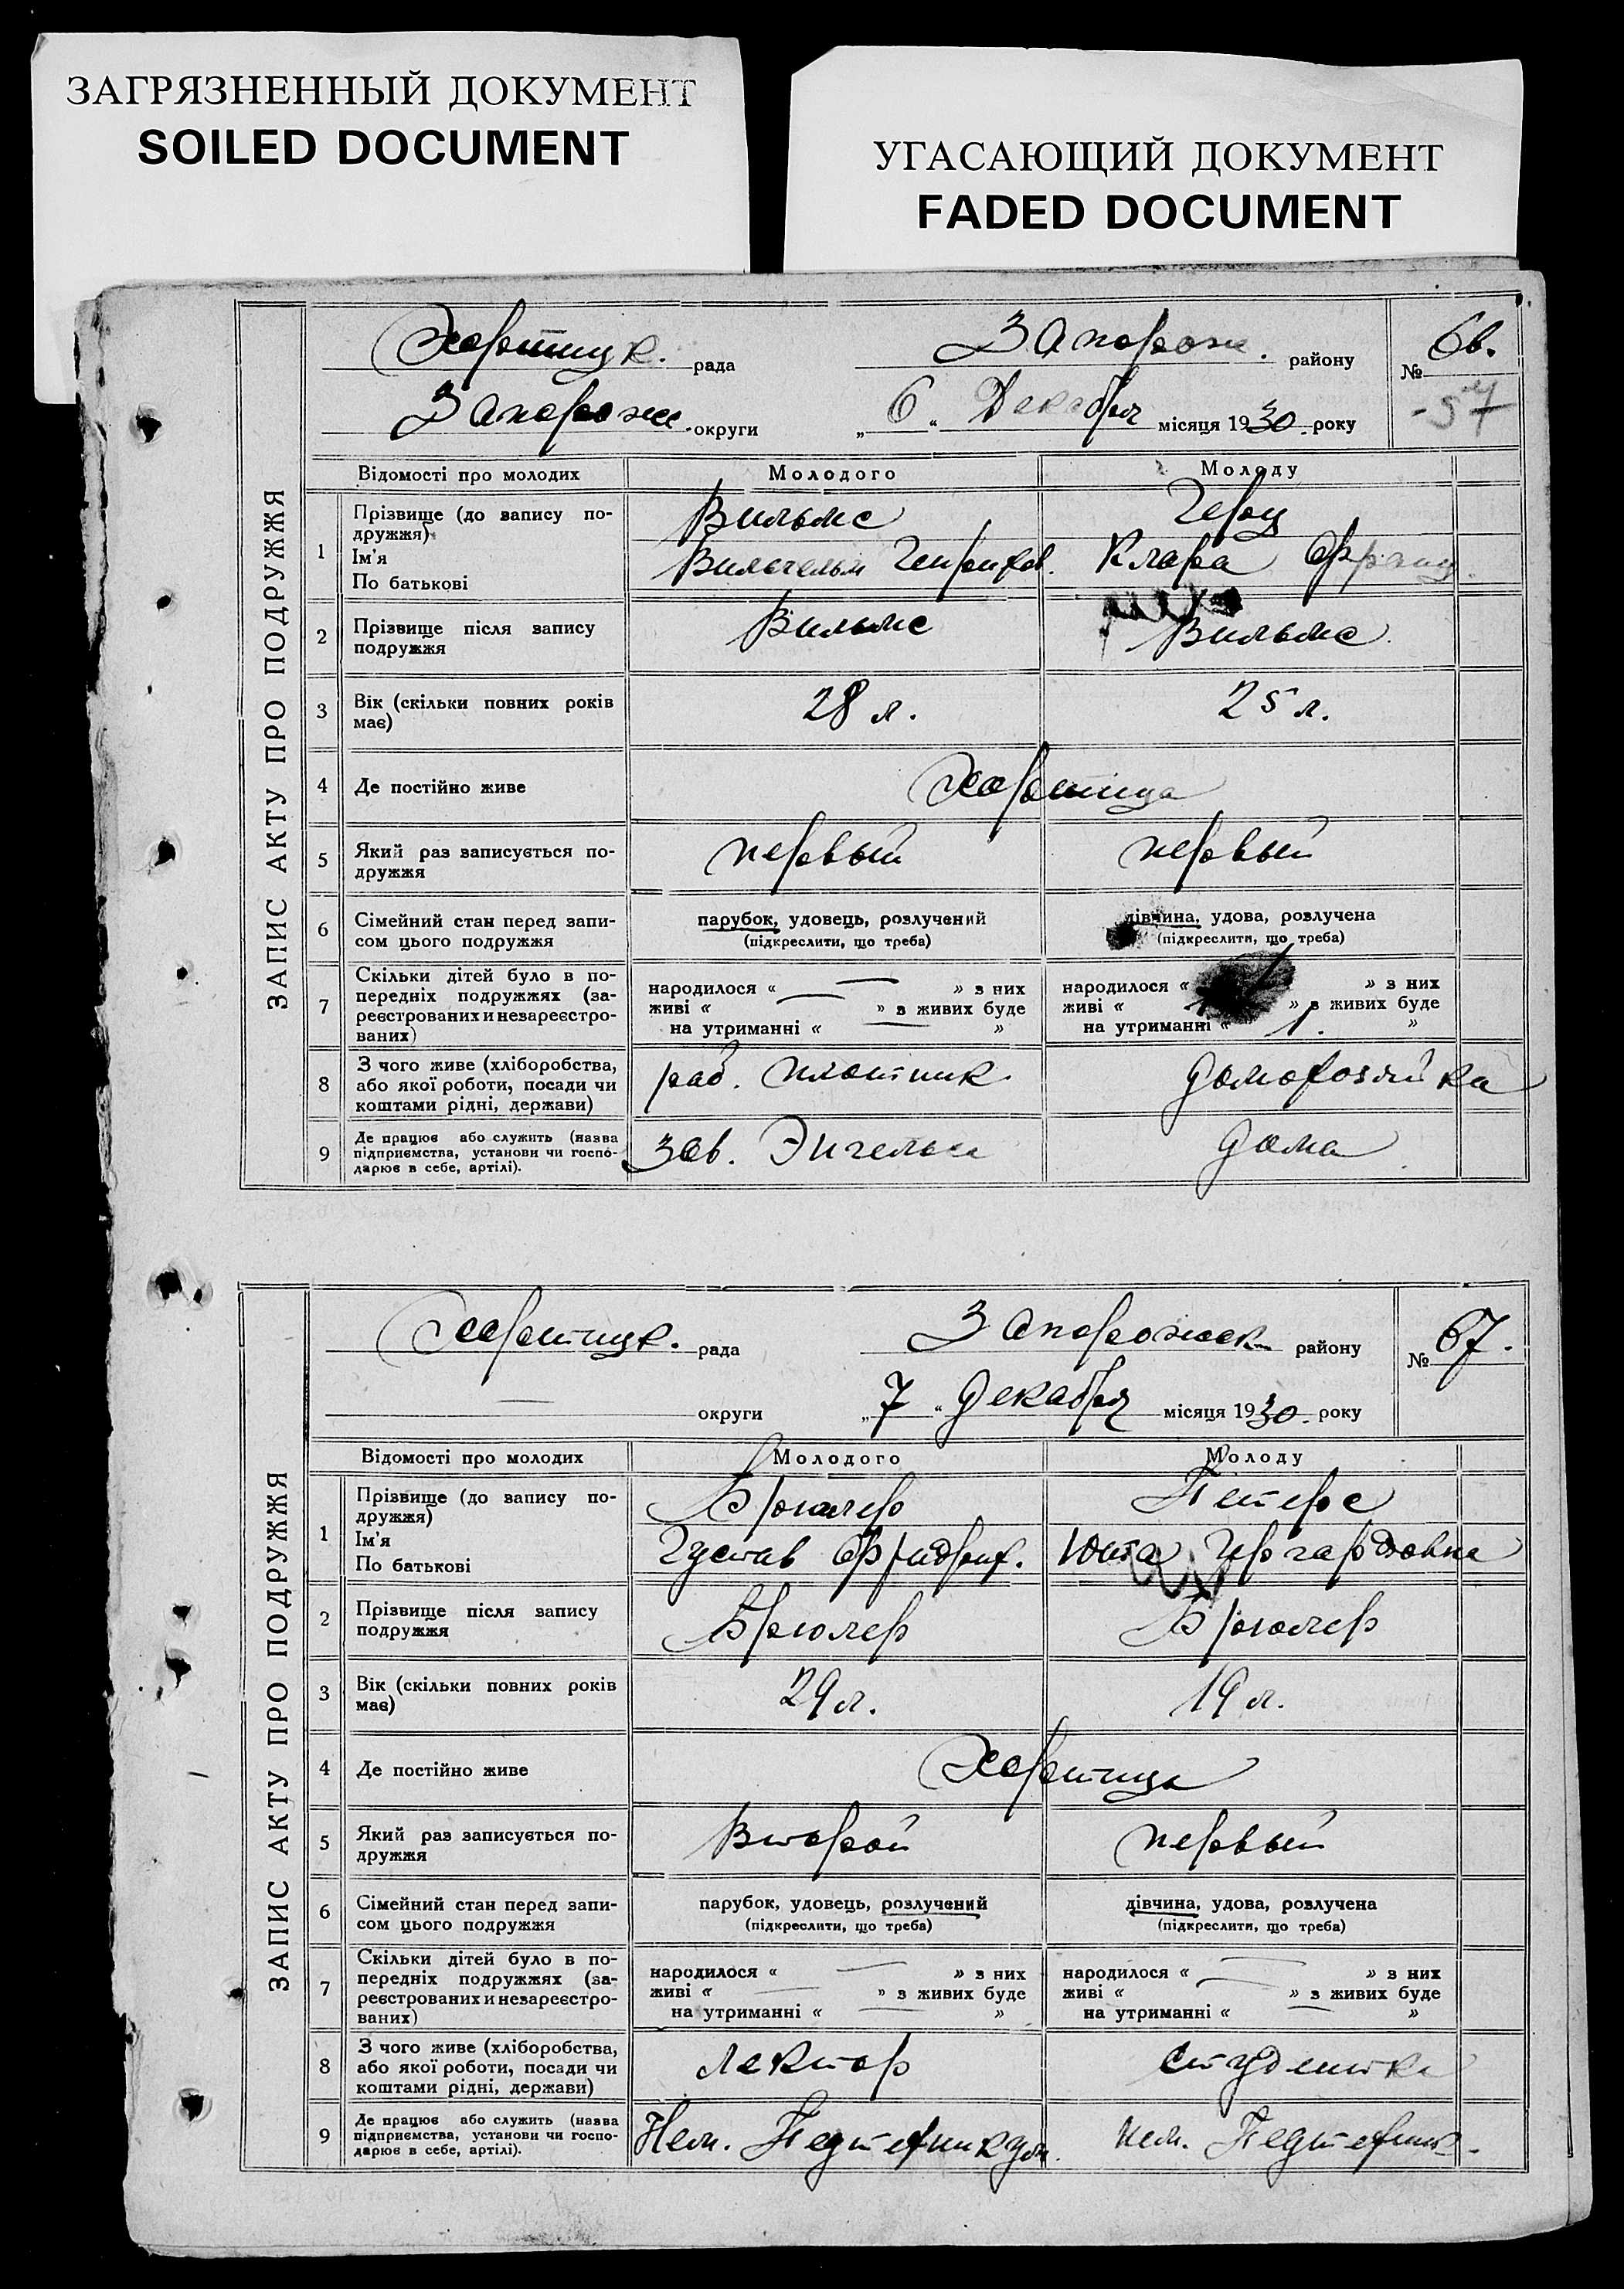 ЗАГРЯЗНЕННЫЙ ДОКУМЕНТ
SOILED DOCUMENT
УГАСАЮЩИЙ ДОКУМЕНТ
FADED DOCUMENT
ЗАПИС АКТУ ПРО ПОДРУЖЖЯ
Хортицк. рада Запорож. району № 66.
Запорож. округи „6“ Декабря місяця 1930. року
Відомості про молодих Молодого Молоду
1 Прізвище (до запису по-
дружжя) Вильмс Герц
Ім'я
По батькові Вильгельм Генрихов. Клара Франц.
2 Прізвище після запису
подружжя Вильмс Вильмс
3 Вік (скільки повних років
має) 28 л. 25 л.
4 Де постійно живе Хортица
5 Який раз записується по-
дружжя первый первый
6 Сімейний стан перед запи-
сом цього подружжя парубок, удовець, розлучений дівчина, удова, розлучена
(підкреслити, що треба) (підкреслити, що треба)
7 Скільки дітей було в по-
передніх подружжях (за-
реєстрованих и незареєстро-
ваних)
народилося « — » з них народилося « » з них
живі « — » з живих буде живі « » з живих буде
на утриманні « — » на утриманні « 1. »
8 З чого живе (хліборобства,
або якої роботи, посади чи
коштами рідні, держави) раб. плотник домохозяйка
9 Де працює або служить (назва
підприємства, установи чи госпо-
дарює в себе, артілі). зав. Энгельса дома
ЗАПИС АКТУ ПРО ПОДРУЖЖЯ
Хортицк. рада Запорожск. району № 67.
— округи „7“ Декабря місяця 1930. року
Відомості про молодих Молодого Молоду
1 Прізвище (до запису по-
дружжя) Брюлер Петерс
Ім'я
По батькові Густав Фридрих. Юта Гергардовна
2 Прізвище після запису
подружжя Брюлер Брюлер
3 Вік (скільки повних років
має) 29 л. 19 л.
4 Де постійно живе Хортица
5 Який раз записується по-
дружжя Второй первый
6 Сімейний стан перед запи-
сом цього подружжя парубок, удовець, розлучений дівчина, удова, розлучена
(підкреслити, що треба) (підкреслити, що треба)
7 Скільки дітей було в по-
передніх подружжях (за-
реєстрованих и незареєстро-
ваних)
народилося « — » з них народилося « — » з них
живі « — » з живих буде живі « — » з живих буде
на утриманні « — » на утриманні « — »
8 З чого живе (хліборобства,
або якої роботи, посади чи
коштами рідні, держави) Лектор студентка
9 Де працює або служить (назва
підприємства, установи чи госпо-
дарює в себе, артілі). Нем. Педтехникум. нем. Педтехник.